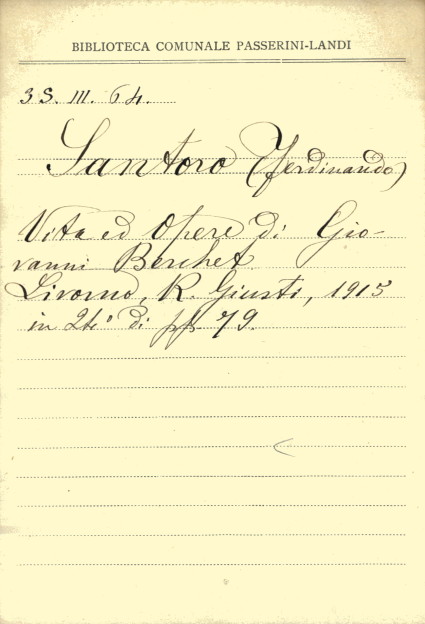 BIBLIOTECA COMUNALE PASSERINI-LANDI
3S. III. 64.
Santoro (Ferdinando)
Vita ed Opere di Gio-
vanni Berchet
Livorno, R. Giusti, 1915
in 24º di pp. 79.